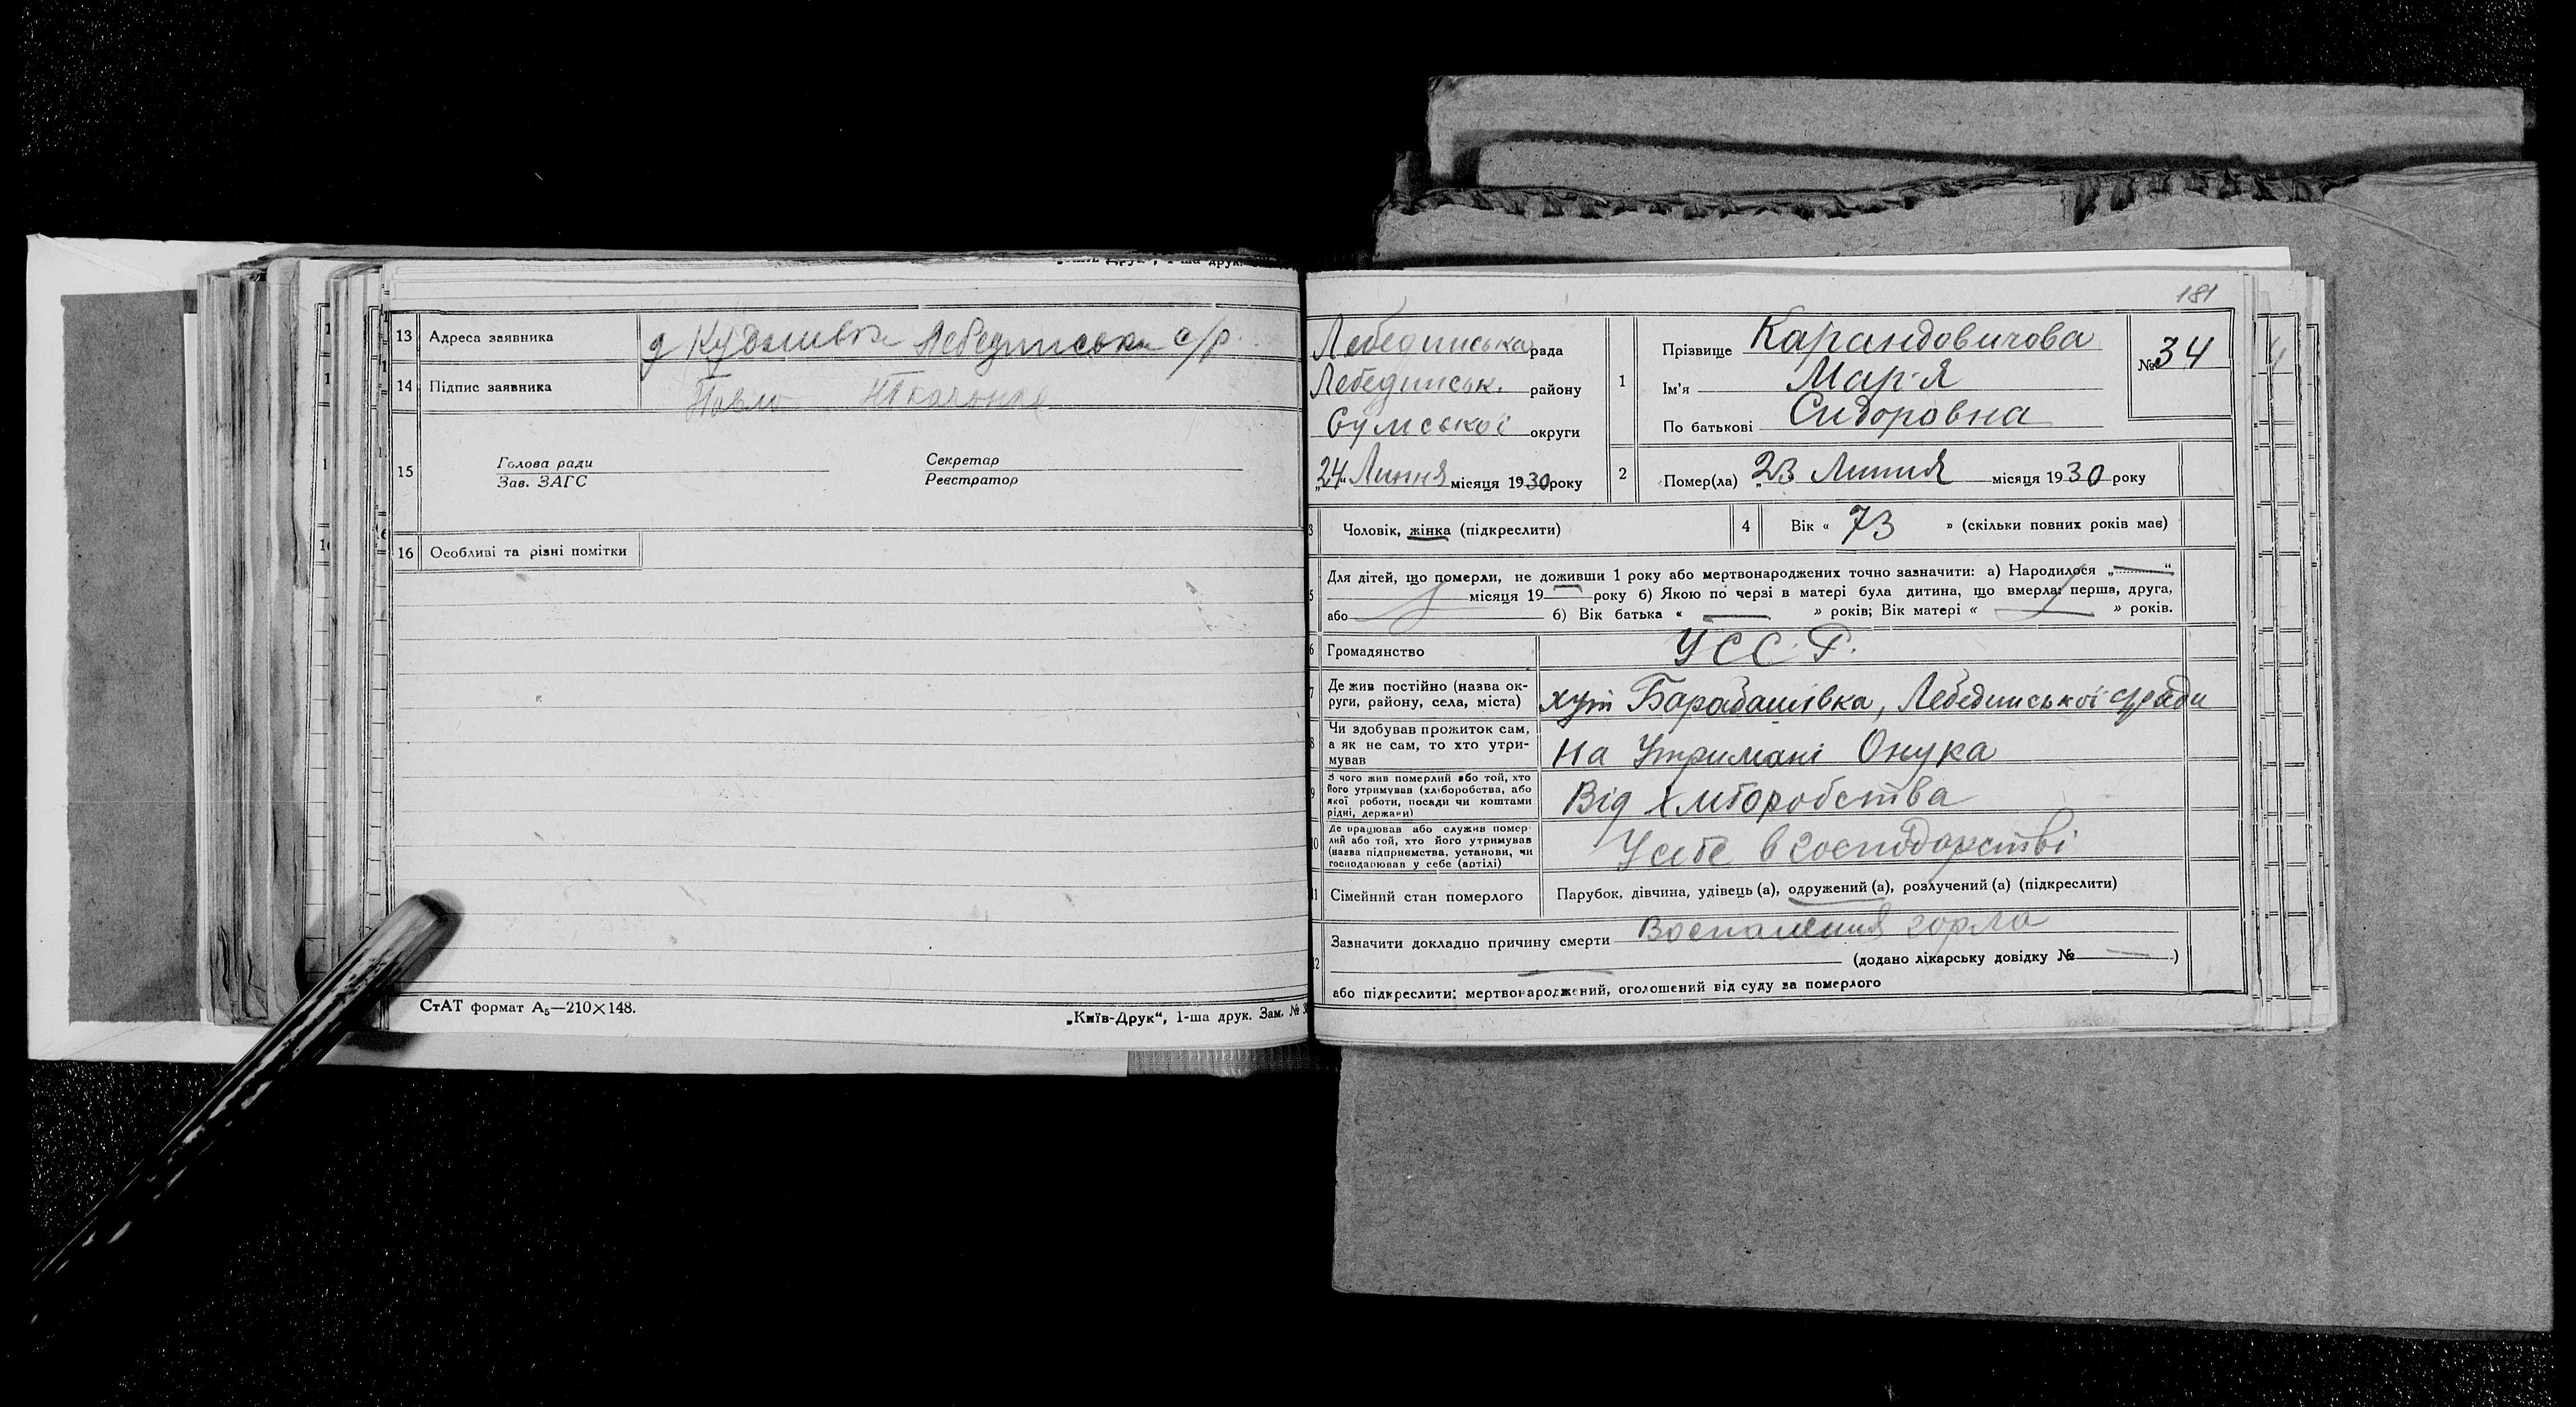 13 Адреса заявника Лебединська с/р.
14 Підпис заявника Павло
15 Голова ради Секретар
Зав. ЗАГС Реєстратор
16 Особливі та різні помітки
СтАТ формат А₅—210×148.
„Київ-Друк“, 1-ша друк. Зам. №
181
Лебединська рада
Лебединськ. району
Сумської округи
„24“ Липня місяця 1930 року
1 Прізвище Карандовичова
Ім'я Мар'я
По батькові Сидоровна
№ 34
2 Помер(ла) „23 Липня місяця 1930 року
3 Чоловік, жінка (підкреслити)
4 Вік « 73 » (скільки повних років має)
5 Для дітей, що померли, не доживши 1 року або мертвонароджених точно зазначити: а) Народилося „ “
місяця 19 року б) Якою по черзі в матері була дитина, що вмерла: перша, друга,
або б) Вік батька « » років; Вік матері « » років.
6 Громадянство УССР.
7 Де жив постійно (назва ок-
руги, району, села, міста) хут Барабашівка, Лебединської с/ради
8 Чи здобував прожиток сам,
а як не сам, то хто утри-
мував На Утримані Онука
9 З чого жив померлий або той, хто
його утримував (хліборобства, або
якої роботи, посади чи коштами
рідні, держави) Від хліборобства
10 Де працював або служив помер-
лий або той, хто його утримував
(назва підприємства, установи, чи
господарював у себе (артілі) У себе в господарстві
11 Сімейний стан померлого Парубок, дівчина, удівець (а), одружений (а), розлучений (а) (підкреслити)
12 Зазначити докладно причину смерти Воспаления горла
(додано лікарську довідку № )
або підкреслити: мертвонароджений, оголошений від суду за померлого